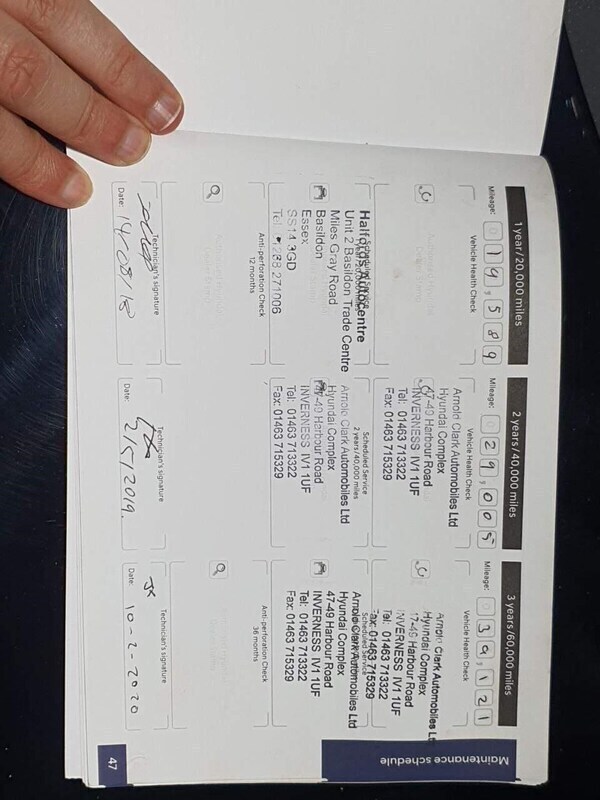 Maintenance schedule
1 year/20,000 miles
Mileage: 019,589
Vehicle Health Check
Scheduled Service
Halfords Autocentre
Unit 2 Basildon Trade Centre
Miles Gray Road
Basildon
Essex
SS14 3GD
Anti-perforation Check
12 months
Technician's signature
Date: 14/08/18
2 years/40,000 miles
Mileage: 029,005
Vehicle Health Check
Arnold Clark Automobiles Ltd
Hyundai Complex
47-49 Harbour Road
INVERNESS IV1 1UF
Tel: 01463 713322
Fax: 01463 715329
Scheduled Service
2 years/40,000 miles
Arnold Clark Automobiles Ltd
Hyundai Complex
47-49 Harbour Road
INVERNESS IV1 1UF
Tel: 01463 713322
Fax: 01463 715329
Technician's signature
Date: 2/5/2019.
3 years/60,000 miles
Mileage: 039,121
Vehicle Health Check
Arnold Clark Automobiles Lt
Hyundai Complex
47-49 Harbour Road
INVERNESS IV1 1UF
Tel: 01463 713322
Fax: 01463 715329
Scheduled Service
Arnold Clark Automobiles Ltd
Hyundai Complex
47-49 Harbour Road
INVERNESS IV1 1UF
Tel: 01463 713322
Fax: 01463 715329
Anti-perforation Check
36 months
Technician's signature
Date: 10-2-2020
47